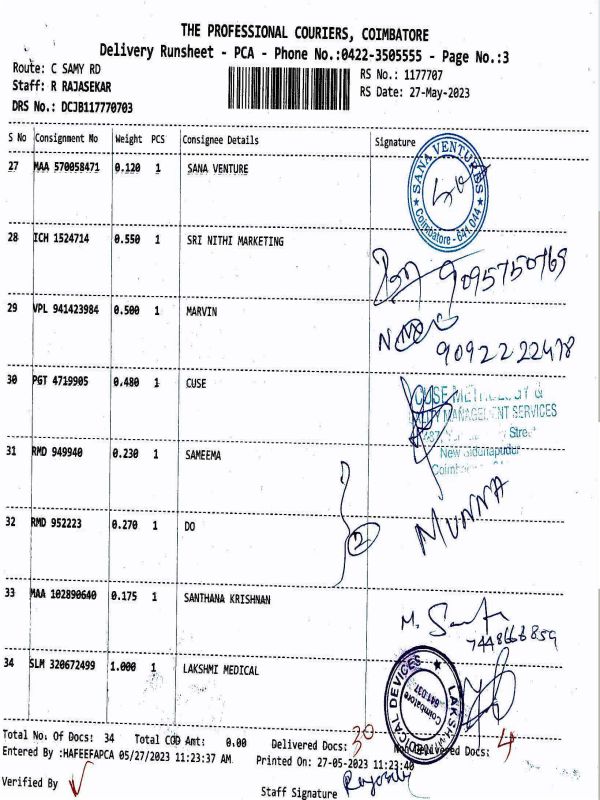 THE PROFESSIONAL COURIERS, COIMBATORE
Delivery Runsheet - PCA - Phone No.:0422-3505555 - Page No.:3
Route: C SAMY RD
RS No.: 1177707
Staff: R RAJASEKAR
RS Date: 27-May-2023
DRS No.: DCJB117770703
S No Consignment No Weight PCS Consignee Details Signature
27 MAA 570058471 0.120 1 SANA VENTURE
SANA VENTURES
Coimbatore - 641 044
28 ICH 1524714 0.550 1 SRI NITHI MARKETING
9095750769
29 VPL 941423984 0.500 1 MARVIN
9092222478
30 PGT 4719905 0.480 1 CUSE
CUSE &
MANAGEMENT SERVICES
Street
New Siddhapudur
31 RMD 949940 0.230 1 SAMEEMA
MUNNA
32 RMD 952223 0.270 1 DO
2
33 MAA 102890640 0.175 1 SANTHANA KRISHNAN
M.
7448666859
34 SLM 320672499 1.000 1 LAKSHMI MEDICAL
LAKSHMI MEDICAL DEVICES
Coimbatore
641 037
Total No. Of Docs: 34 Total COD Amt: 0.00 Delivered Docs: 30 Non Delivered Docs: 4
Entered By :HAFEEFAPCA 05/27/2023 11:23:37 AM Printed On: 27-05-2023 11:23:40
Verified By
Staff Signature